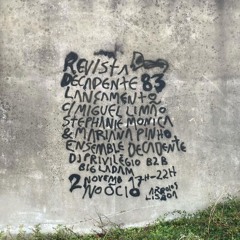 REVISTA
DECADENTE 83
LANÇAMENTO
C/ MIGUEL LIMÃO
STEPHANIE MONICA
& MARIANA PINHO
ENSEMBLE DECADENTE
DJ PRIVILÉGIO B2B
BIG LADAM
2 NOVEMB 17H-22H
NO ÓCIO ARROIOS
LISBOA